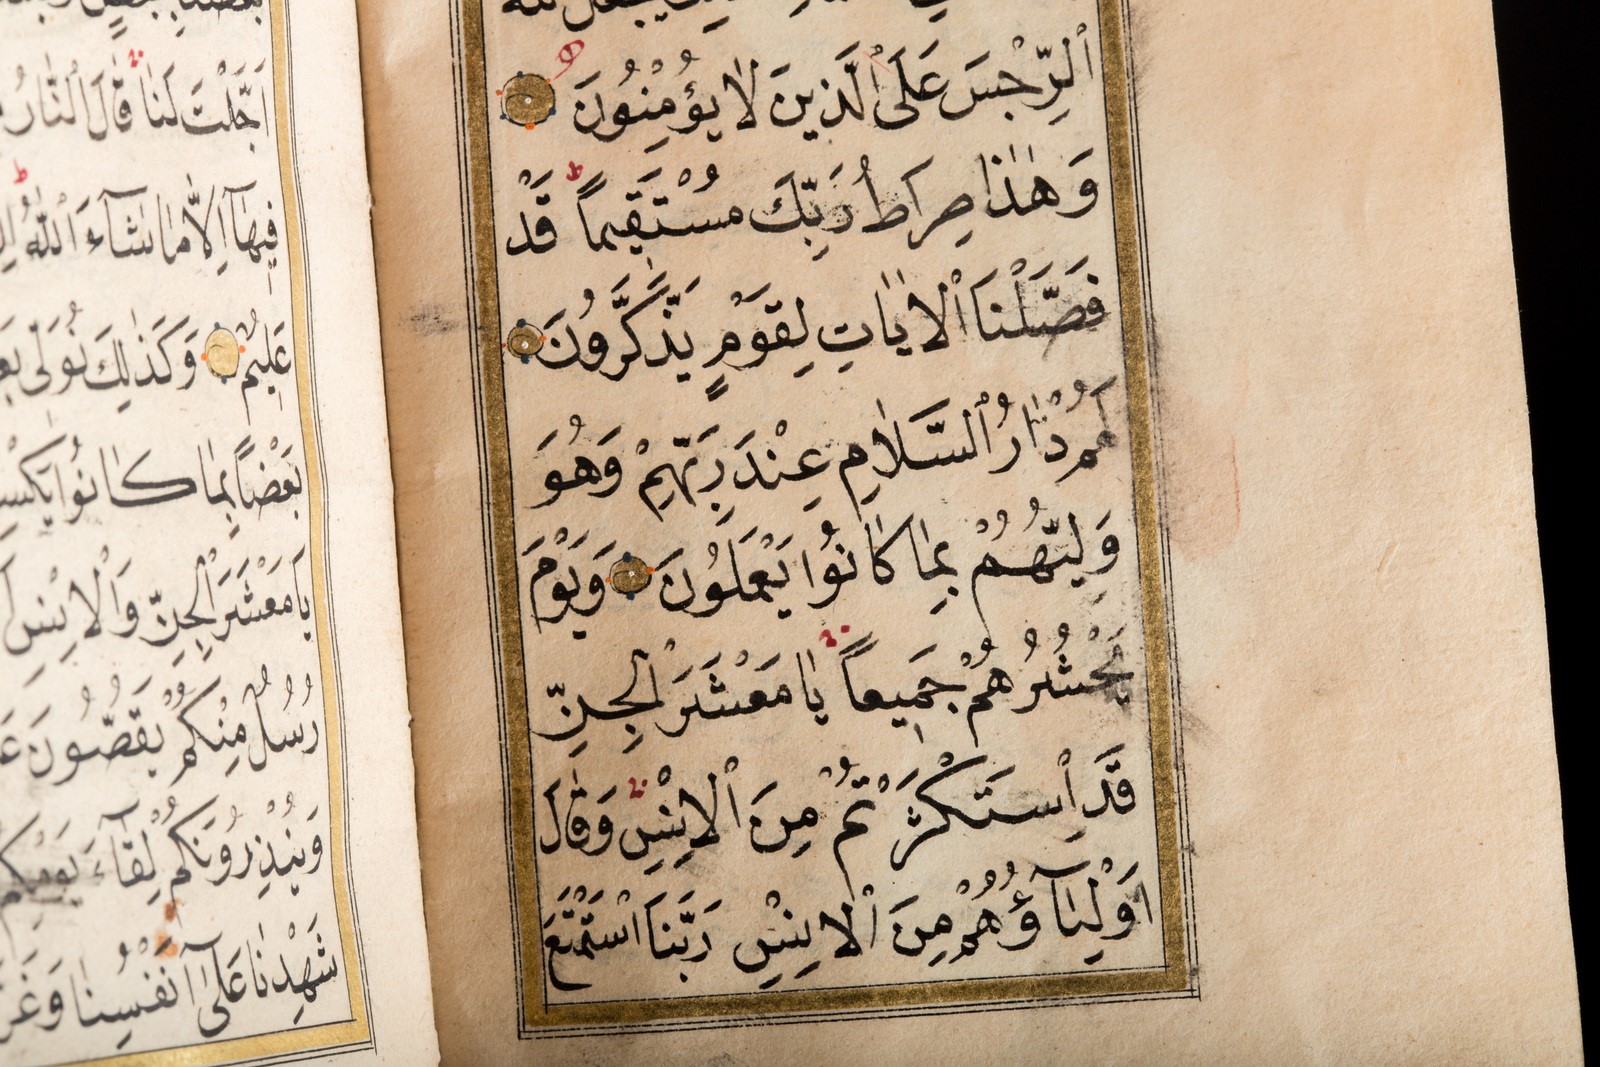 اَلرِّجْسَ عَلَى الَّذِينَ لَا يُؤْمِنُونَ
وَهٰذَا صِرَاطُ رَبِّكَ مُسْتَقِيماً ط قَدْ
فَصَّلْنَا الْاٰيَاتِ لِقَوْمٍ يَذَّكَّرُونَ
لَهُمْ دَارُ السَّلَامِ عِنْدَ رَبِّهِمْ وَهُوَ
وَلِيُّهُمْ بِمَا كَانُوا يَعْمَلُونَ وَيَوْمَ
يَحْشُرُهُمْ جَمِيعاً يَا مَعْشَرَ الْجِنِّ
قَدِ اسْتَكْثَرْتُمْ مِنَ الْاِنْسِ وَقَالَ
اَوْلِيَاؤُهُمْ مِنَ الْاِنْسِ رَبَّنَا اسْتَمْتَعَ
اَجَّلْتَ لَنَا قَالَ النَّارُ
فِيهَا اِلَّا مَا شَاءَ اللّٰهُ
عَلِيمٌ وَكَذٰلِكَ نُوَلِّى
بَعْضاً بِمَا كَانُوا
يَا مَعْشَرَ الْجِنِّ وَالْاِنْسِ
رُسُلٌ مِنْكُمْ يَقُصُّونَ
وَيُنْذِرُونَكُمْ لِقَاءَ يَوْمِكُمْ
شَهِدْنَا عَلٰى اَنْفُسِنَا